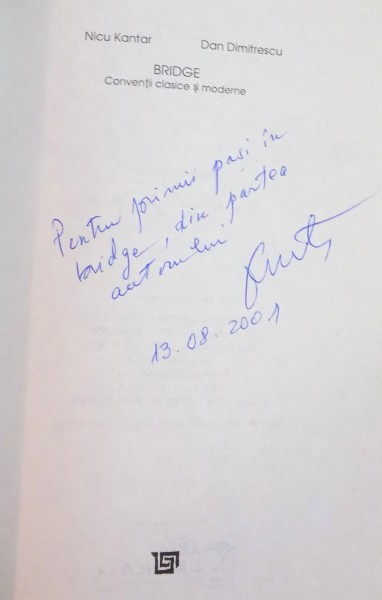 Nicu Kantar Dan Dimitrescu
BRIDGE
Convenții clasice și moderne
Pentru primii pași în
bridge, din partea
autorului
13.08.2001